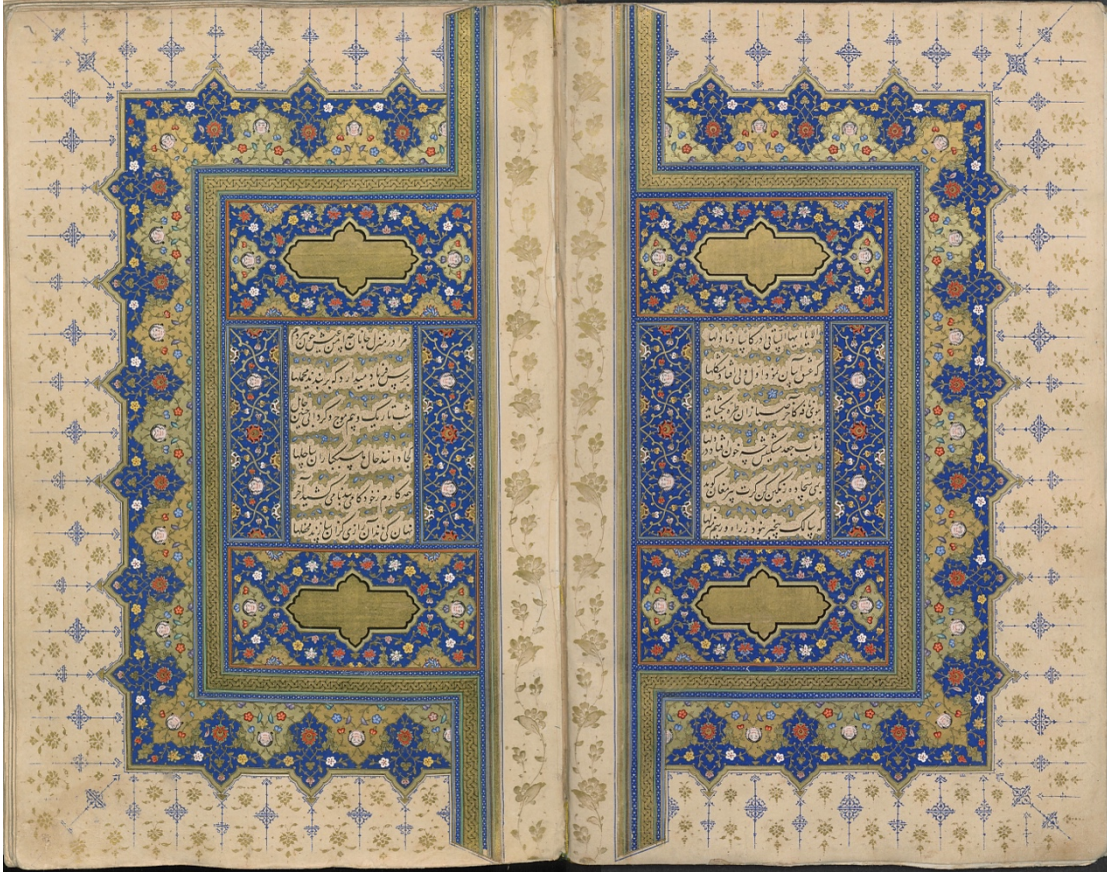 الا یا ایها الساقی ادر کاسا و ناولها
که عشق آسان نمود اول ولی افتاد مشکلها
ببوی نافه کاخر صبا زان طره بگشاید
ز تاب جعد مشکینش چه خون افتاد در دلها
بمی سجاده رنگین کن گرت پیر مغان گوید
که سالک بیخبر نبود ز راه و رسم منزلها
مرا در منزل جانان چه امن عیش چون هر دم
جرس فریاد میدارد که بربندید محملها
شب تاریک و بیم موج و گردابی چنین هایل
کجا دانند حال ما سبکباران ساحلها
همه کارم ز خودکامی ببدنامی کشید آخر
نهان کی ماند آن رازی کزان سازند محفلها